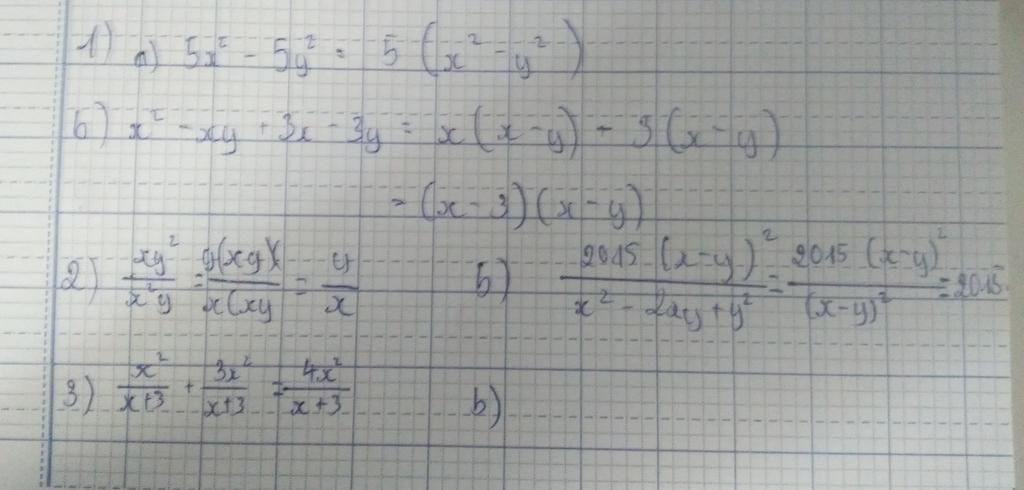 1) a) 5x² - 5y² = 5 (x² - y²)
b) x² - xy + 3x - 3y = x(x-y) - 3(x-y)
= (x-3)(x-y)
2) xy²/x²y = y(xy)/x(xy = y/x b) 2015 (x-y)²/x² - 2xy + y² = 2015 (x-y)²/(x-y)² = 2015
3) x²/x+3 + 3x²/x+3 = 4x²/x+3 b)